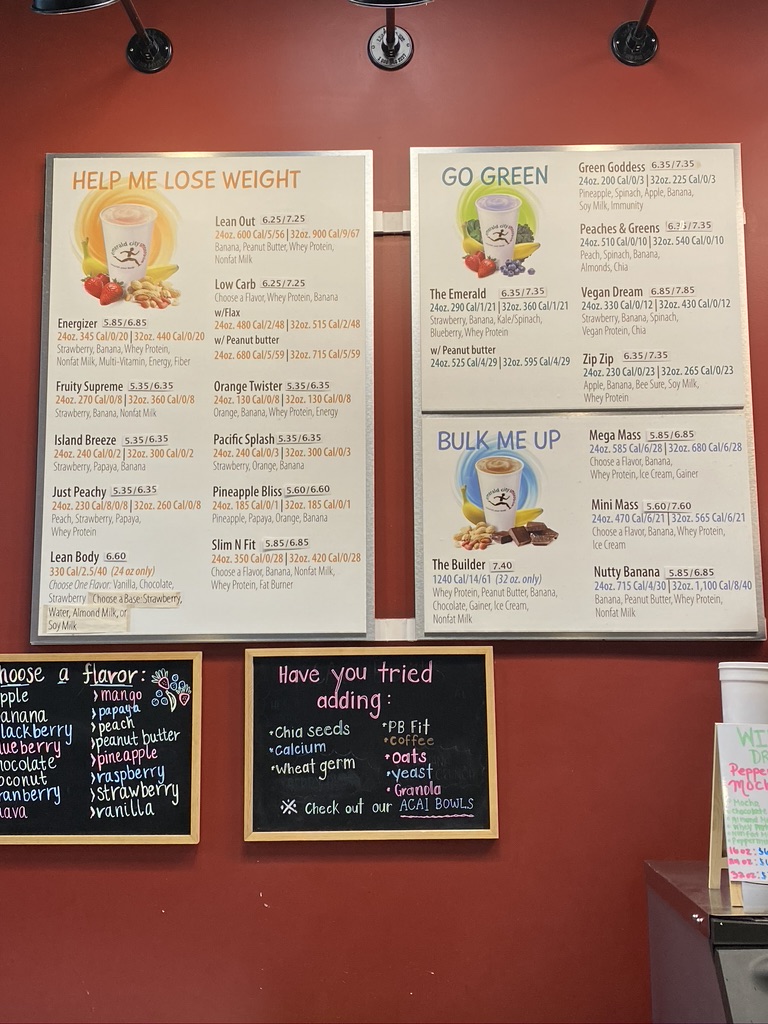 HELP ME LOSE WEIGHT
Energizer 5.85/6.85
24oz. 345 Cal/0/20 | 32oz. 440 Cal/0/20
Strawberry, Banana, Whey Protein,
Nonfat Milk, Multi-Vitamin, Energy, Fiber
Fruity Supreme 5.35/6.35
24oz. 270 Cal/0/8 | 32oz. 360 Cal/0/8
Strawberry, Banana, Nonfat Milk
Island Breeze 5.35/6.35
24oz. 240 Cal/0/2 | 32oz. 300 Cal/0/2
Strawberry, Papaya, Banana
Just Peachy 5.35/6.35
24oz. 230 Cal/8/0/8 | 32oz. 260 Cal/0/8
Peach, Strawberry, Papaya,
Whey Protein
Lean Body 6.60
330 Cal/2.5/40 (24 oz only)
Choose One Flavor: Vanilla, Chocolate,
Strawberry Choose a Base: Strawberry,
Water, Almond Milk, or
Soy Milk
Lean Out 6.25/7.25
24oz. 600 Cal/5/56 | 32oz. 900 Cal/9/67
Banana, Peanut Butter, Whey Protein,
Nonfat Milk
Low Carb 6.25/7.25
Choose a Flavor, Whey Protein, Banana
w/Flax
24oz. 480 Cal/2/48 | 32oz. 515 Cal/2/48
w/ Peanut butter
24oz. 680 Cal/5/59 | 32oz. 715 Cal/5/59
Orange Twister 5.35/6.35
24oz. 130 Cal/0/8 | 32oz. 130 Cal/0/8
Orange, Banana, Whey Protein, Energy
Pacific Splash 5.35/6.35
24oz. 240 Cal/0/3 | 32oz. 300 Cal/0/3
Strawberry, Orange, Banana
Pineapple Bliss 5.60/6.60
24oz. 185 Cal/0/1 | 32oz. 185 Cal/0/1
Pineapple, Papaya, Orange, Banana
Slim N Fit 5.85/6.85
24oz. 350 Cal/0/28 | 32oz. 420 Cal/0/28
Choose a Flavor, Banana, Nonfat Milk,
Whey Protein, Fat Burner
GO GREEN
The Emerald 6.35/7.35
24oz. 290 Cal/1/21 | 32oz. 360 Cal/1/21
Strawberry, Banana, Kale/Spinach,
Blueberry, Whey Protein
w/ Peanut butter
24oz. 525 Cal/4/29 | 32oz. 595 Cal/4/29
Green Goddess 6.35/7.35
24oz. 200 Cal/0/3 | 32oz. 225 Cal/0/3
Pineapple, Spinach, Apple, Banana,
Soy Milk, Immunity
Peaches & Greens 6.35/7.35
24oz. 510 Cal/0/10 | 32oz. 540 Cal/0/10
Peach, Spinach, Banana,
Almonds, Chia
Vegan Dream 6.85/7.85
24oz. 330 Cal/0/12 | 32oz. 430 Cal/0/12
Strawberry, Banana, Spinach,
Vegan Protein, Chia
Zip Zip 6.35/7.35
24oz. 230 Cal/0/23 | 32oz. 265 Cal/0/23
Apple, Banana, Bee Sure, Soy Milk,
Whey Protein
BULK ME UP
The Builder 7.40
1240 Cal/14/61 (32 oz. only)
Whey Protein, Peanut Butter, Banana,
Chocolate, Gainer, Ice Cream,
Nonfat Milk
Mega Mass 5.85/6.85
24oz. 585 Cal/6/28 | 32oz. 680 Cal/6/28
Choose a Flavor, Banana,
Whey Protein, Ice Cream, Gainer
Mini Mass 5.60/7.60
24oz. 470 Cal/6/21 | 32oz. 565 Cal/6/21
Choose a Flavor, Banana, Whey Protein,
Ice Cream
Nutty Banana 5.85/6.85
24oz. 715 Cal/4/30 | 32oz. 1,100 Cal/8/40
Banana, Peanut Butter, Whey Protein,
Nonfat Milk
hoose a flavor:
pple
anana
lackberry
lueberry
hocolate
oconut
ranberry
uava
>mango
>papaya
>peach
>peanut butter
>pineapple
>raspberry
>strawberry
>vanilla
Have you tried
adding:
•Chia seeds
•Calcium
•Wheat germ
•PB Fit
•Coffee
•oats
•yeast
•Granola
※ Check out our ACAI BOWLS
WI
DR
Pepper
Moch
•Mocha
•chocolate
•Almond M
•Whey Prot
•Peppermin
16oz: $
32oz: $